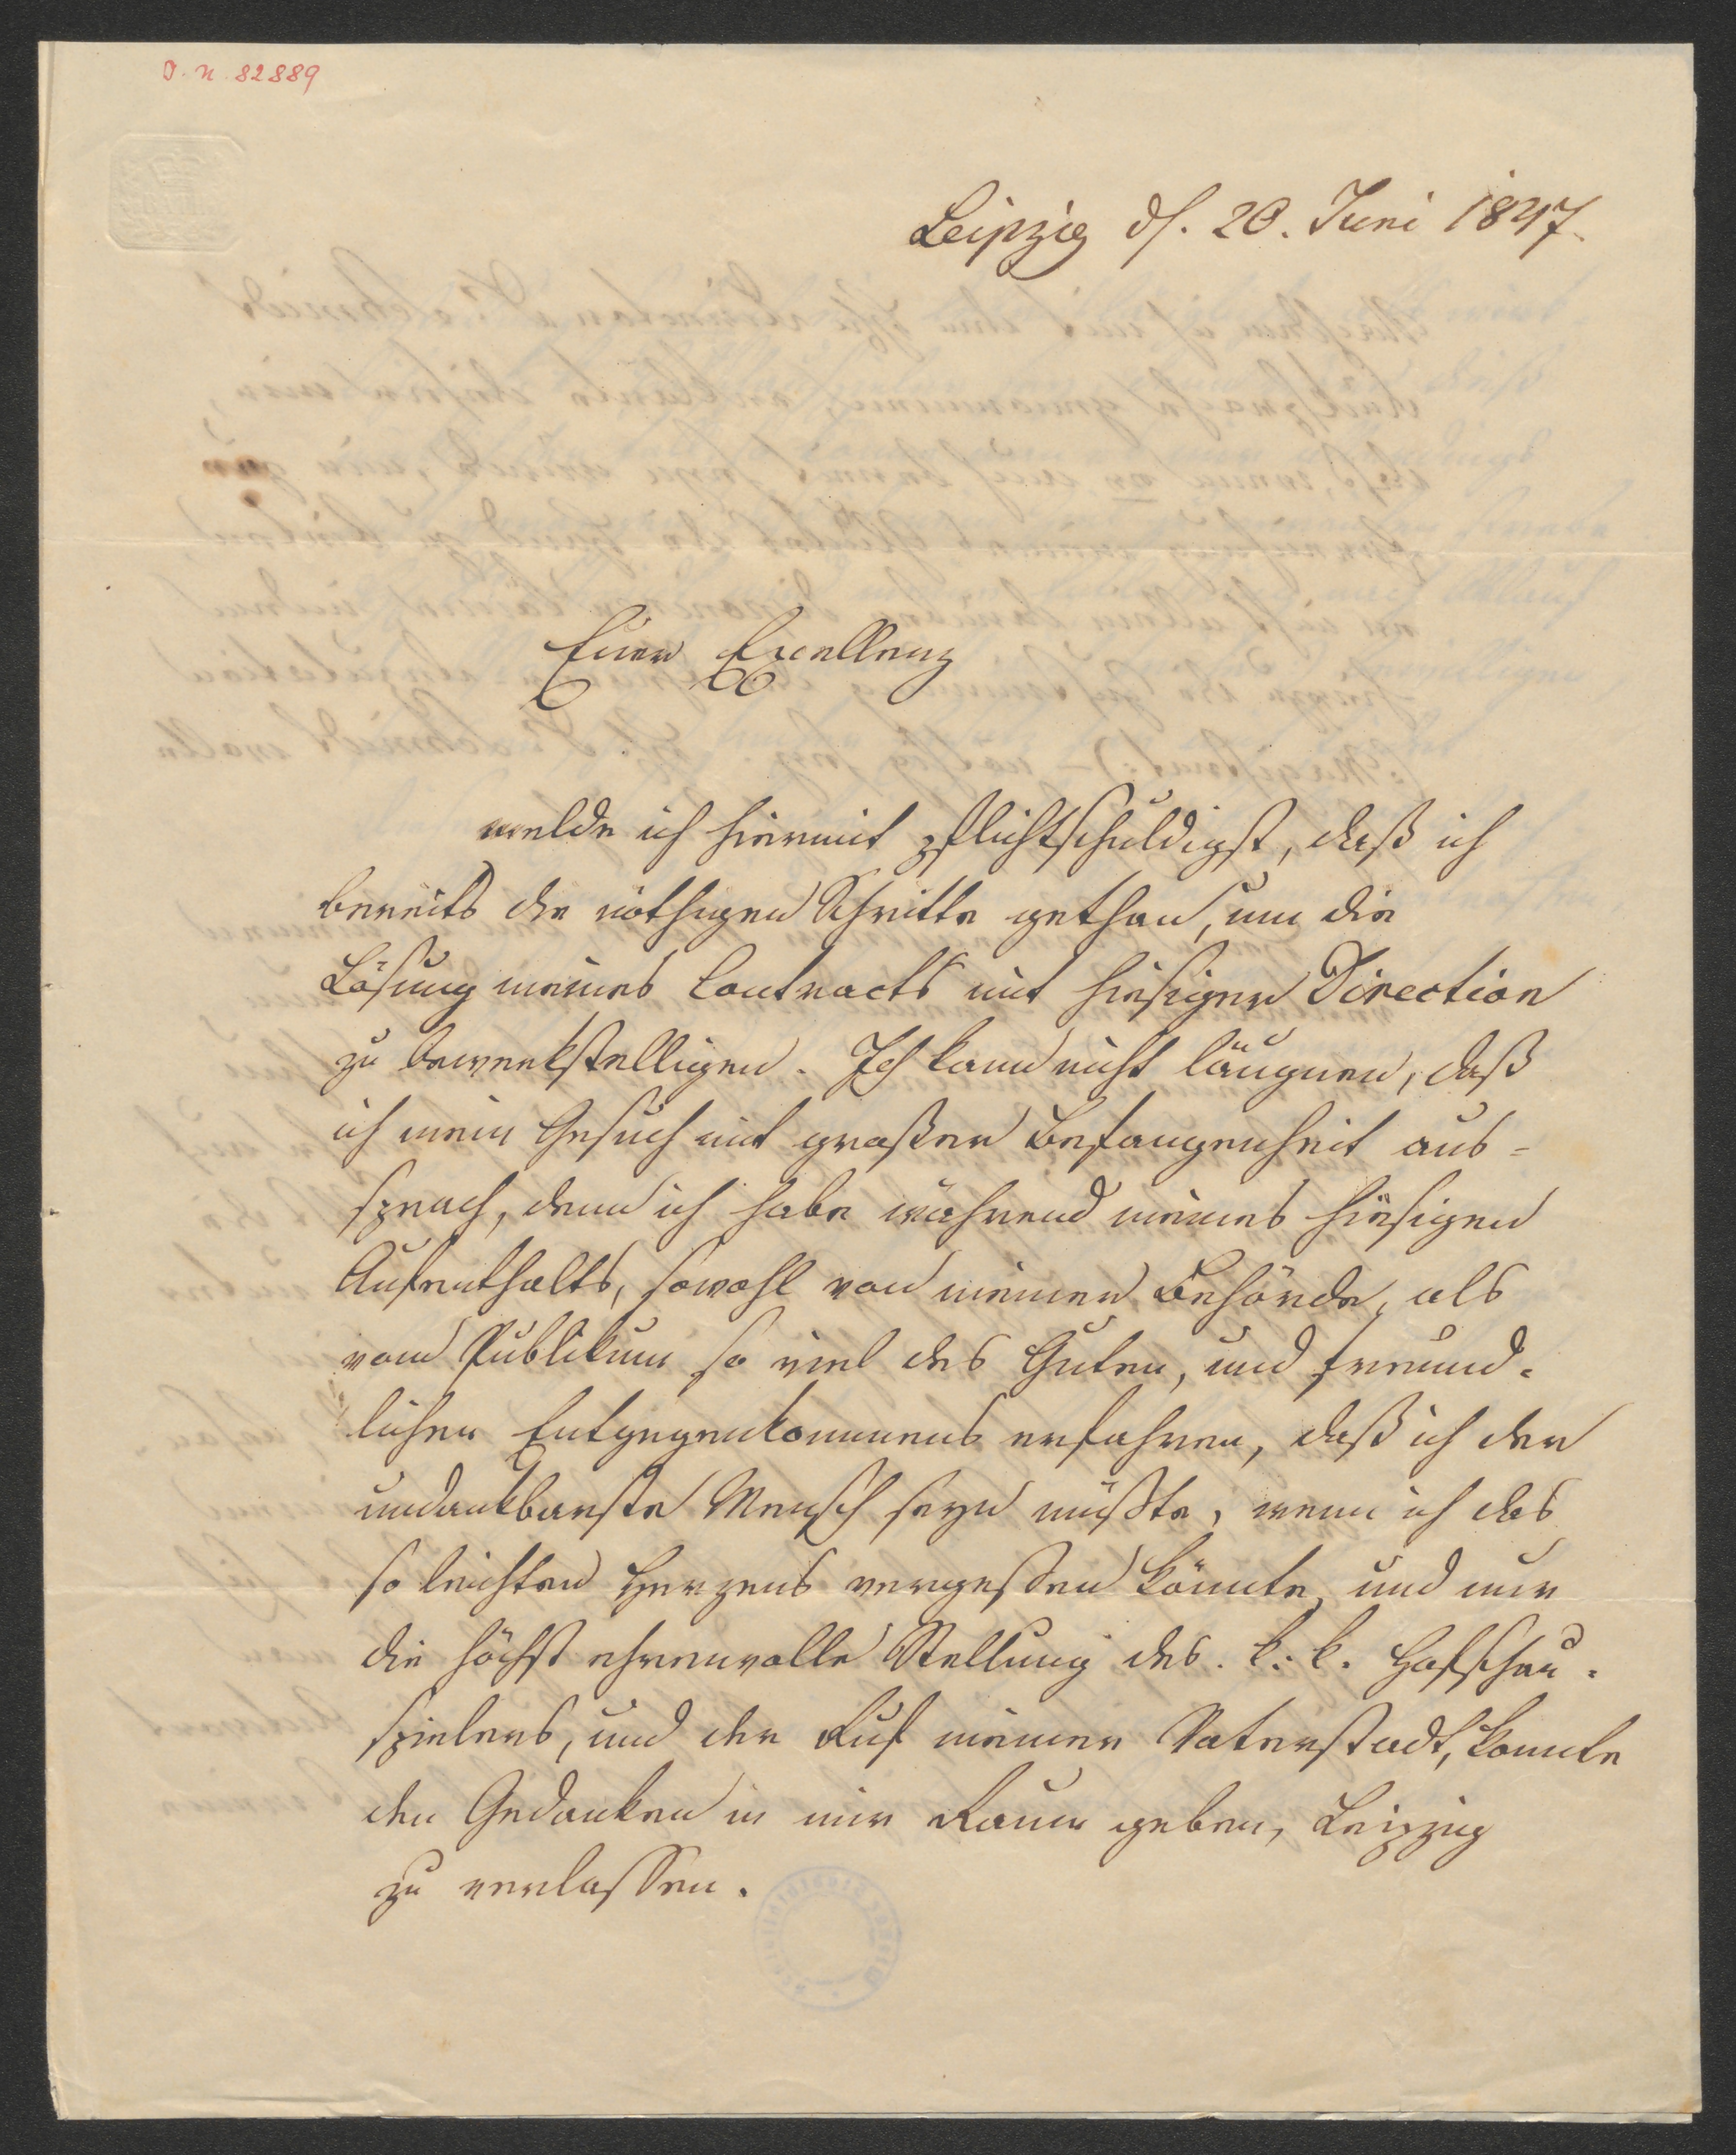 J. N. 82889
Leipzig d. 20. Juni 1847.
Euer Excellenz
melde ich hiermit pflichtschuldigst, daß ich
bereits die nöthigen Schritte gethan, um die
Lösung meines Contracts mit hiesiger Direction
zu bewerkstelligen. Ich kann nicht läugnen, daß
ich mein Gesuch mit großer Befangenheit aus-
sprach, denn ich habe während meines hiesigen
Aufenthalts, sowohl von meiner Behörde, als
vom Publikum so viel des Guten, und freund-
lichen Entgegenkommens erfahren, daß ich der
undankbarste Mensch seyn müßte, wenn ich das
so leichten Herzens vergeßen könnte, und nur
die höchst ehrenvolle Stellung des k. k. Hofschau-
spielers, und der Ruf meiner Vaterstadt, konnte
den Gedanken in mir Raum geben, Leipzig
zu verlassen.